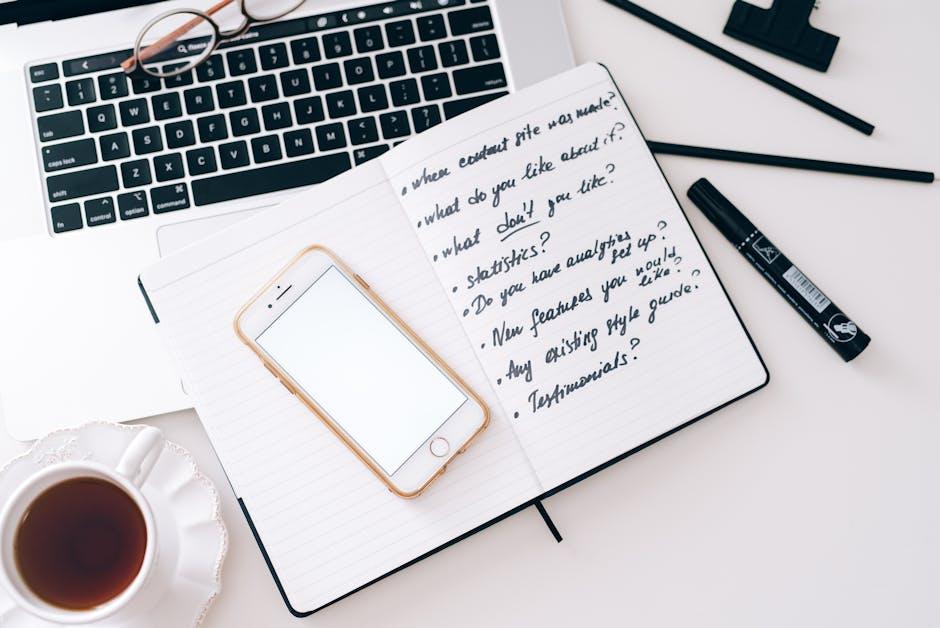 • when content site was made?
• what do you like about it?
• what don't you like?
• statistics?
• Do you have analytics
set up?
• New features you would
like?
• Any existing style guide?
• Testimonials?
esc
1 2 3 4 5 6 7 8 9 0
tab Q W E R T Y U I O P
caps lock A S D F G H J K L
shift Z X C V B N M
fn control option command